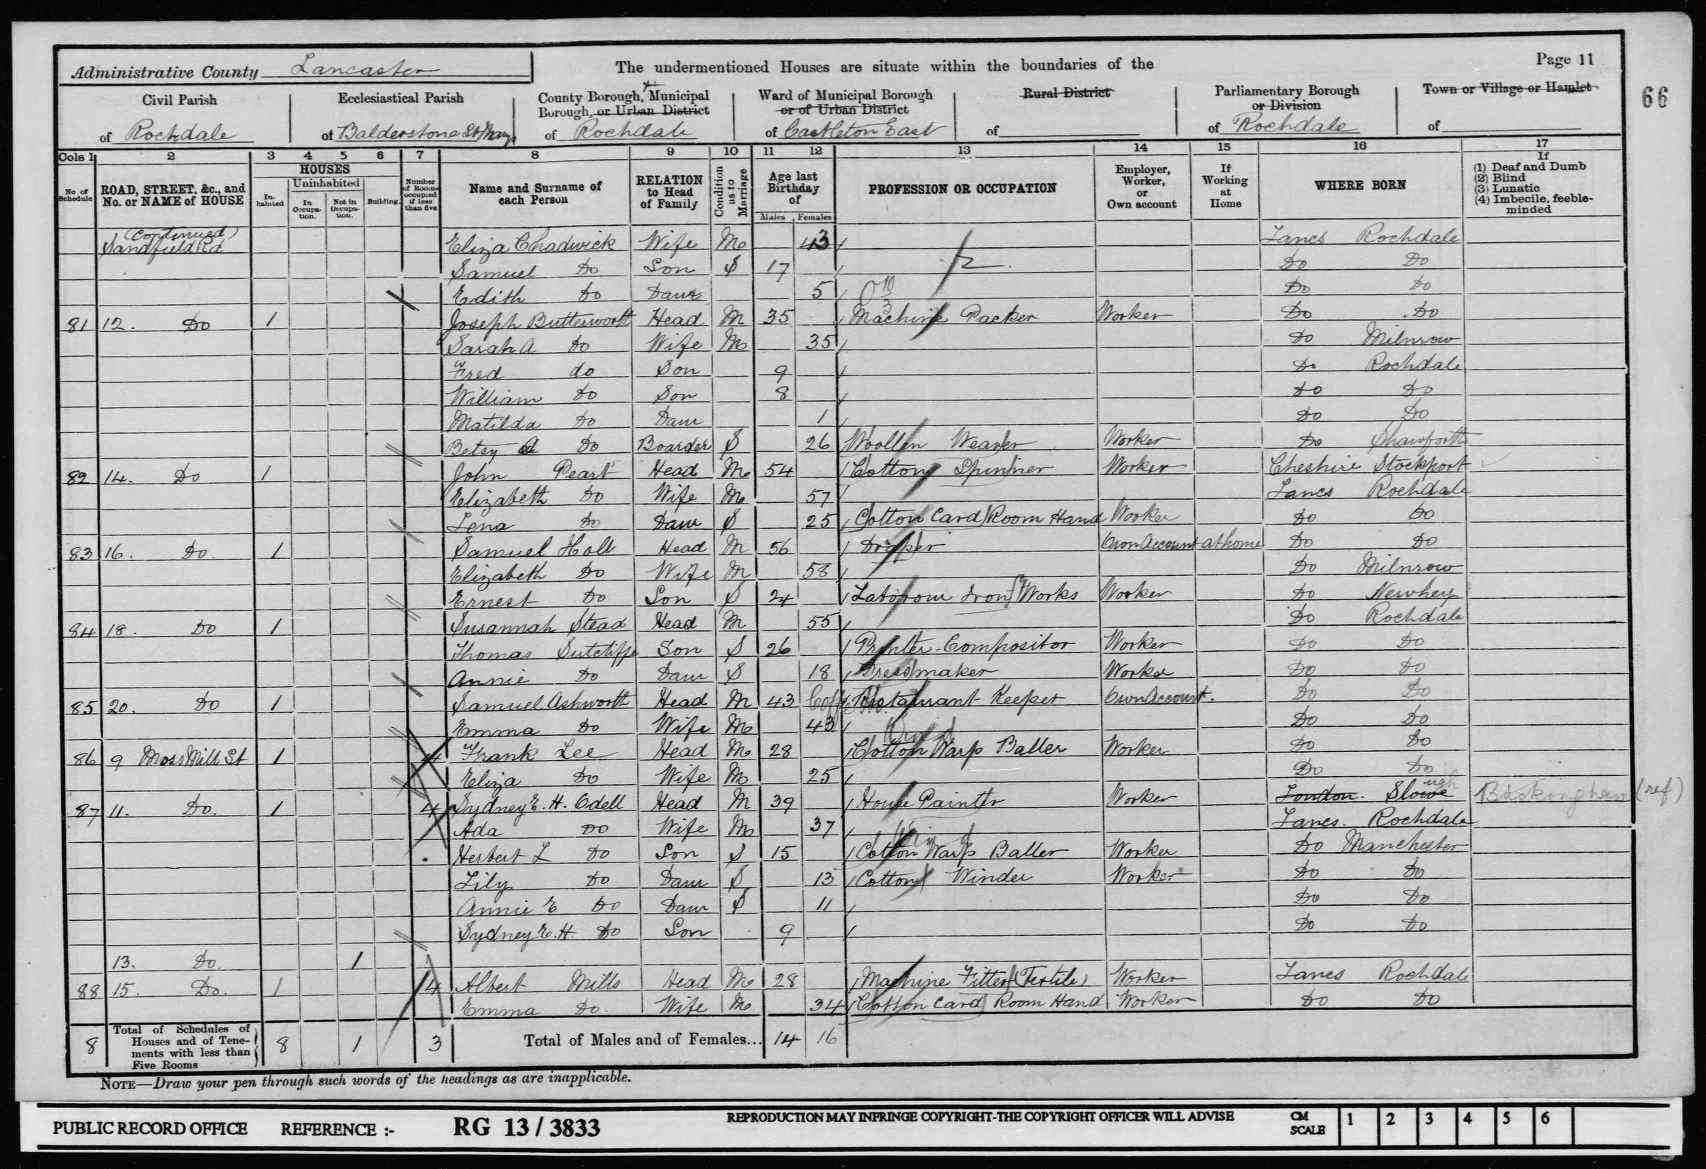 Administrative County Lancaster The undermentioned Houses are situate within the boundaries of the Page 11
66
Civil Parish of Rochdale
Ecclesiastical Parish of Balderstone St Mary
County Borough, Municipal Borough, or Urban District of Rochdale
Ward of Municipal Borough or of Urban District of Castleton East
Rural District of
Parliamentary Borough or Division of Rochdale
Town or Village or Hamlet of
Cols 1 2 3 4 5 6 7 8 9 10 11 12 13 14 15 16 17
No of Schedule
ROAD, STREET, &c., and No. or NAME of HOUSE
HOUSES
In-habited
Uninhabited
In Occupa-tion.
Not in Occupa-tion.
Building.
Number of Rooms occupied if less than five
Name and Surname of each Person
RELATION to Head of Family
Condition as to Marriage
Age last Birthday of
Males Females
PROFESSION OR OCCUPATION
Employer, Worker, or Own account
If Working at Home
WHERE BORN
If (1) Deaf and Dumb
(2) Blind
(3) Lunatic
(4) Imbecile, feeble-minded
(Continued)
Sandfield Rd Eliza Chadwick Wife M 43 Lancs Rochdale
Samuel Do Son S 17 Do Do
Edith Do Daur 5 Do Do
81 12. Do 1 Joseph Butterworth Head M 35 Machine Packer Worker Do Do
Sarah A Do Wife M 35 Do Milnrow
Fred do Son 9 Do Rochdale
William Do Son 8 Do Do
Matilda Do Daur 1 Do Do
Betsy A Do Boarder S 26 Woollen Weaver Worker Do Shawforth
82 14. Do 1 John Peart Head M 54 Cotton Spinner Worker Cheshire Stockport
Elizabeth Do Wife M 57 Lancs Rochdale
Lena Do Daur S 25 Cotton Card Room Hand Worker Do Do
83 16. Do 1 Samuel Holt Head M 56 Draper Own Account at home Do Do
Elizabeth Do Wife M 58 Do Milnrow
Ernest Do Son S 24 Labourer Iron Works Worker Do Newhey
84 18. Do 1 Susannah Stead Head M 55 Do Rochdale
Thomas Sutcliffe Son S 26 Printer Compositor Worker Do Do
Annie Do Daur S 18 Dressmaker Worker Do Do
85 20. Do 1 Samuel Ashworth Head M 43 Restaurant Keeper Own Account. Do Do
Emma Do Wife M 43 Do Do
86 9 Moss Mill St 1 4 Frank Lee Head M 28 Cotton Warp Baller Worker Do Do
Eliza Do Wife M 25 Do Do
87 11. Do. 1 4 Sydney E. H. Odell Head M 39 House Painter Worker London. Slowe Buckingham (ref)
Ada Do Wife M 37 Lancs. Rochdale
Herbert L Do Son S 15 Cotton Warp Baller Worker Do Manchester
Lily Do Daur S 13 Cotton Winder Worker Do Do
Annie E Do Daur S 11 Do Do
Sydney E. H. Do Son 9 Do Do
13. Do. 1
88 15. Do. 1 4 Albert Mills Head M 28 Machine Fitter (Textile) Worker Lancs Rochdale
Emma Do. Wife M 34 Cotton Card Room Hand Worker Do Do
8 Total of Schedules of Houses and of Tene-ments with less than Five Rooms 8 1 3 Total of Males and of Females... 14 16
NOTE—Draw your pen through such words of the headings as are inapplicable.
PUBLIC RECORD OFFICE REFERENCE :- RG 13 / 3833 REPRODUCTION MAY INFRINGE COPYRIGHT-THE COPYRIGHT OFFICER WILL ADVISE CM SCALE 1 2 3 4 5 6